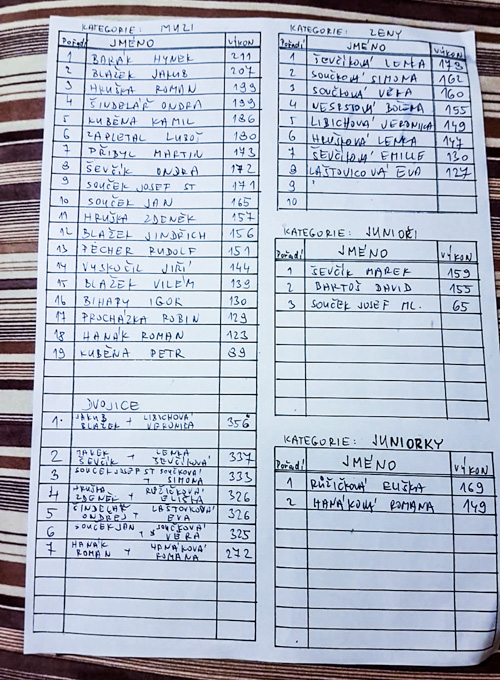 KATEGORIE: MUŽI
Pořadí JMÉNO VÝKON
1 BARÁK HYNEK 211
2 BLAŽEK JAKUB 207
3 HRUŠKA ROMAN 199
4 ŠINDELÁŘ ONDRA 199
5 KUBĚNA KAMIL 186
6 ZAPLETAL LUBOŠ 180
7 PŘIBYL MARTIN 173
8 ŠEVČÍK ONDRA 172
9 SOUČEK JOSEF ST 171
10 SOUČEK JAN 165
11 HRUŠKA ZDENĚK 157
12 BLAŽEK JINDŘICH 156
13 PECHER RUDOLF 151
14 VYSKOČIL JIŘÍ 144
15 BLAŽEK VILÉM 139
16 BIHARY IGOR 130
17 PROCHÁZKA ROBIN 129
18 HANÁK ROMAN 123
19 KUBĚNA PETR 89
DVOJICE
1. JAKUB BLAŽEK + LIBICHOVÁ VERONIKA 356
2 MAREK ŠEVČÍK + LENKA ŠEVČÍKOVÁ 337
3 SOUČEK JOSEF ST + SOUČKOVÁ SIMONA 333
4 HRUŠKA ZDENĚK + RŮŽIČKOVÁ ELIŠKA 326
5 ŠINDELÁŘ ONDŘEJ + LAŠTOVICOVÁ EVA 326
6 SOUČEK JAN + SOUČKOVÁ VĚRA 325
7 HANÁK ROMAN + HANÁKOVÁ ROMANA 272
KATEGORIE: ŽENY
Pořadí JMÉNO VÝKON
1 ŠEVČÍKOVÁ LENKA 178
2 SOUČKOVÁ SIMONA 162
3 SOUČKOVÁ VĚRA 160
4 155
5 LIBICHOVÁ VERONIKA 149
6 HRUŠKOVÁ LENKA 147
7 ŠEVČÍKOVÁ EMILIE 130
8 LAŠTOVICOVÁ EVA 127
9
10
KATEGORIE: JUNIOŘI
Pořadí JMÉNO VÝKON
1 ŠEVČÍK MAREK 159
2 BARTOŠ DAVID 155
3 SOUČEK JOSEF ML. 65
KATEGORIE: JUNIORKY
Pořadí JMÉNO VÝKON
1 RŮŽIČKOVÁ ELIŠKA 169
2 HANÁKOVÁ ROMANA 149